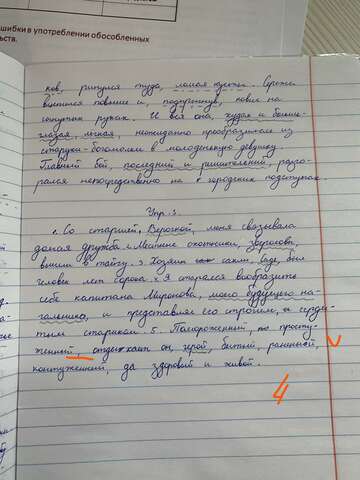 шибки в употреблении обособленных
ьства.
ков, ринулся туда, ломая кусты. Сережа
вытянся повыше и, подпрыгнув, повис на
согнутых руках. И вся она, худая и больше-
глазая, лёгкая, неожиданно преобразилась из
старухи-богомолки в молоденькую девушку.
Главный бой, последний и решительный, разго-
рался непосредственно на городских подступах.
Упр. 3.
1. Со старшей, Верочкой, меня связывала
давняя дружба. 2. Местные охотники,
вышли в тайгу. 3. Хозяин сакли, был
человек лет сорока. 4. Я старался вообразить
себе капитана Миронова, моего будущего на-
чальника, и представлял его строгим, и серди-
тым стариком. 5. Помороженный, просту-
женный, отдыхает он, герой, битый, раненный,
контуженный, да здоровый и живой.
4